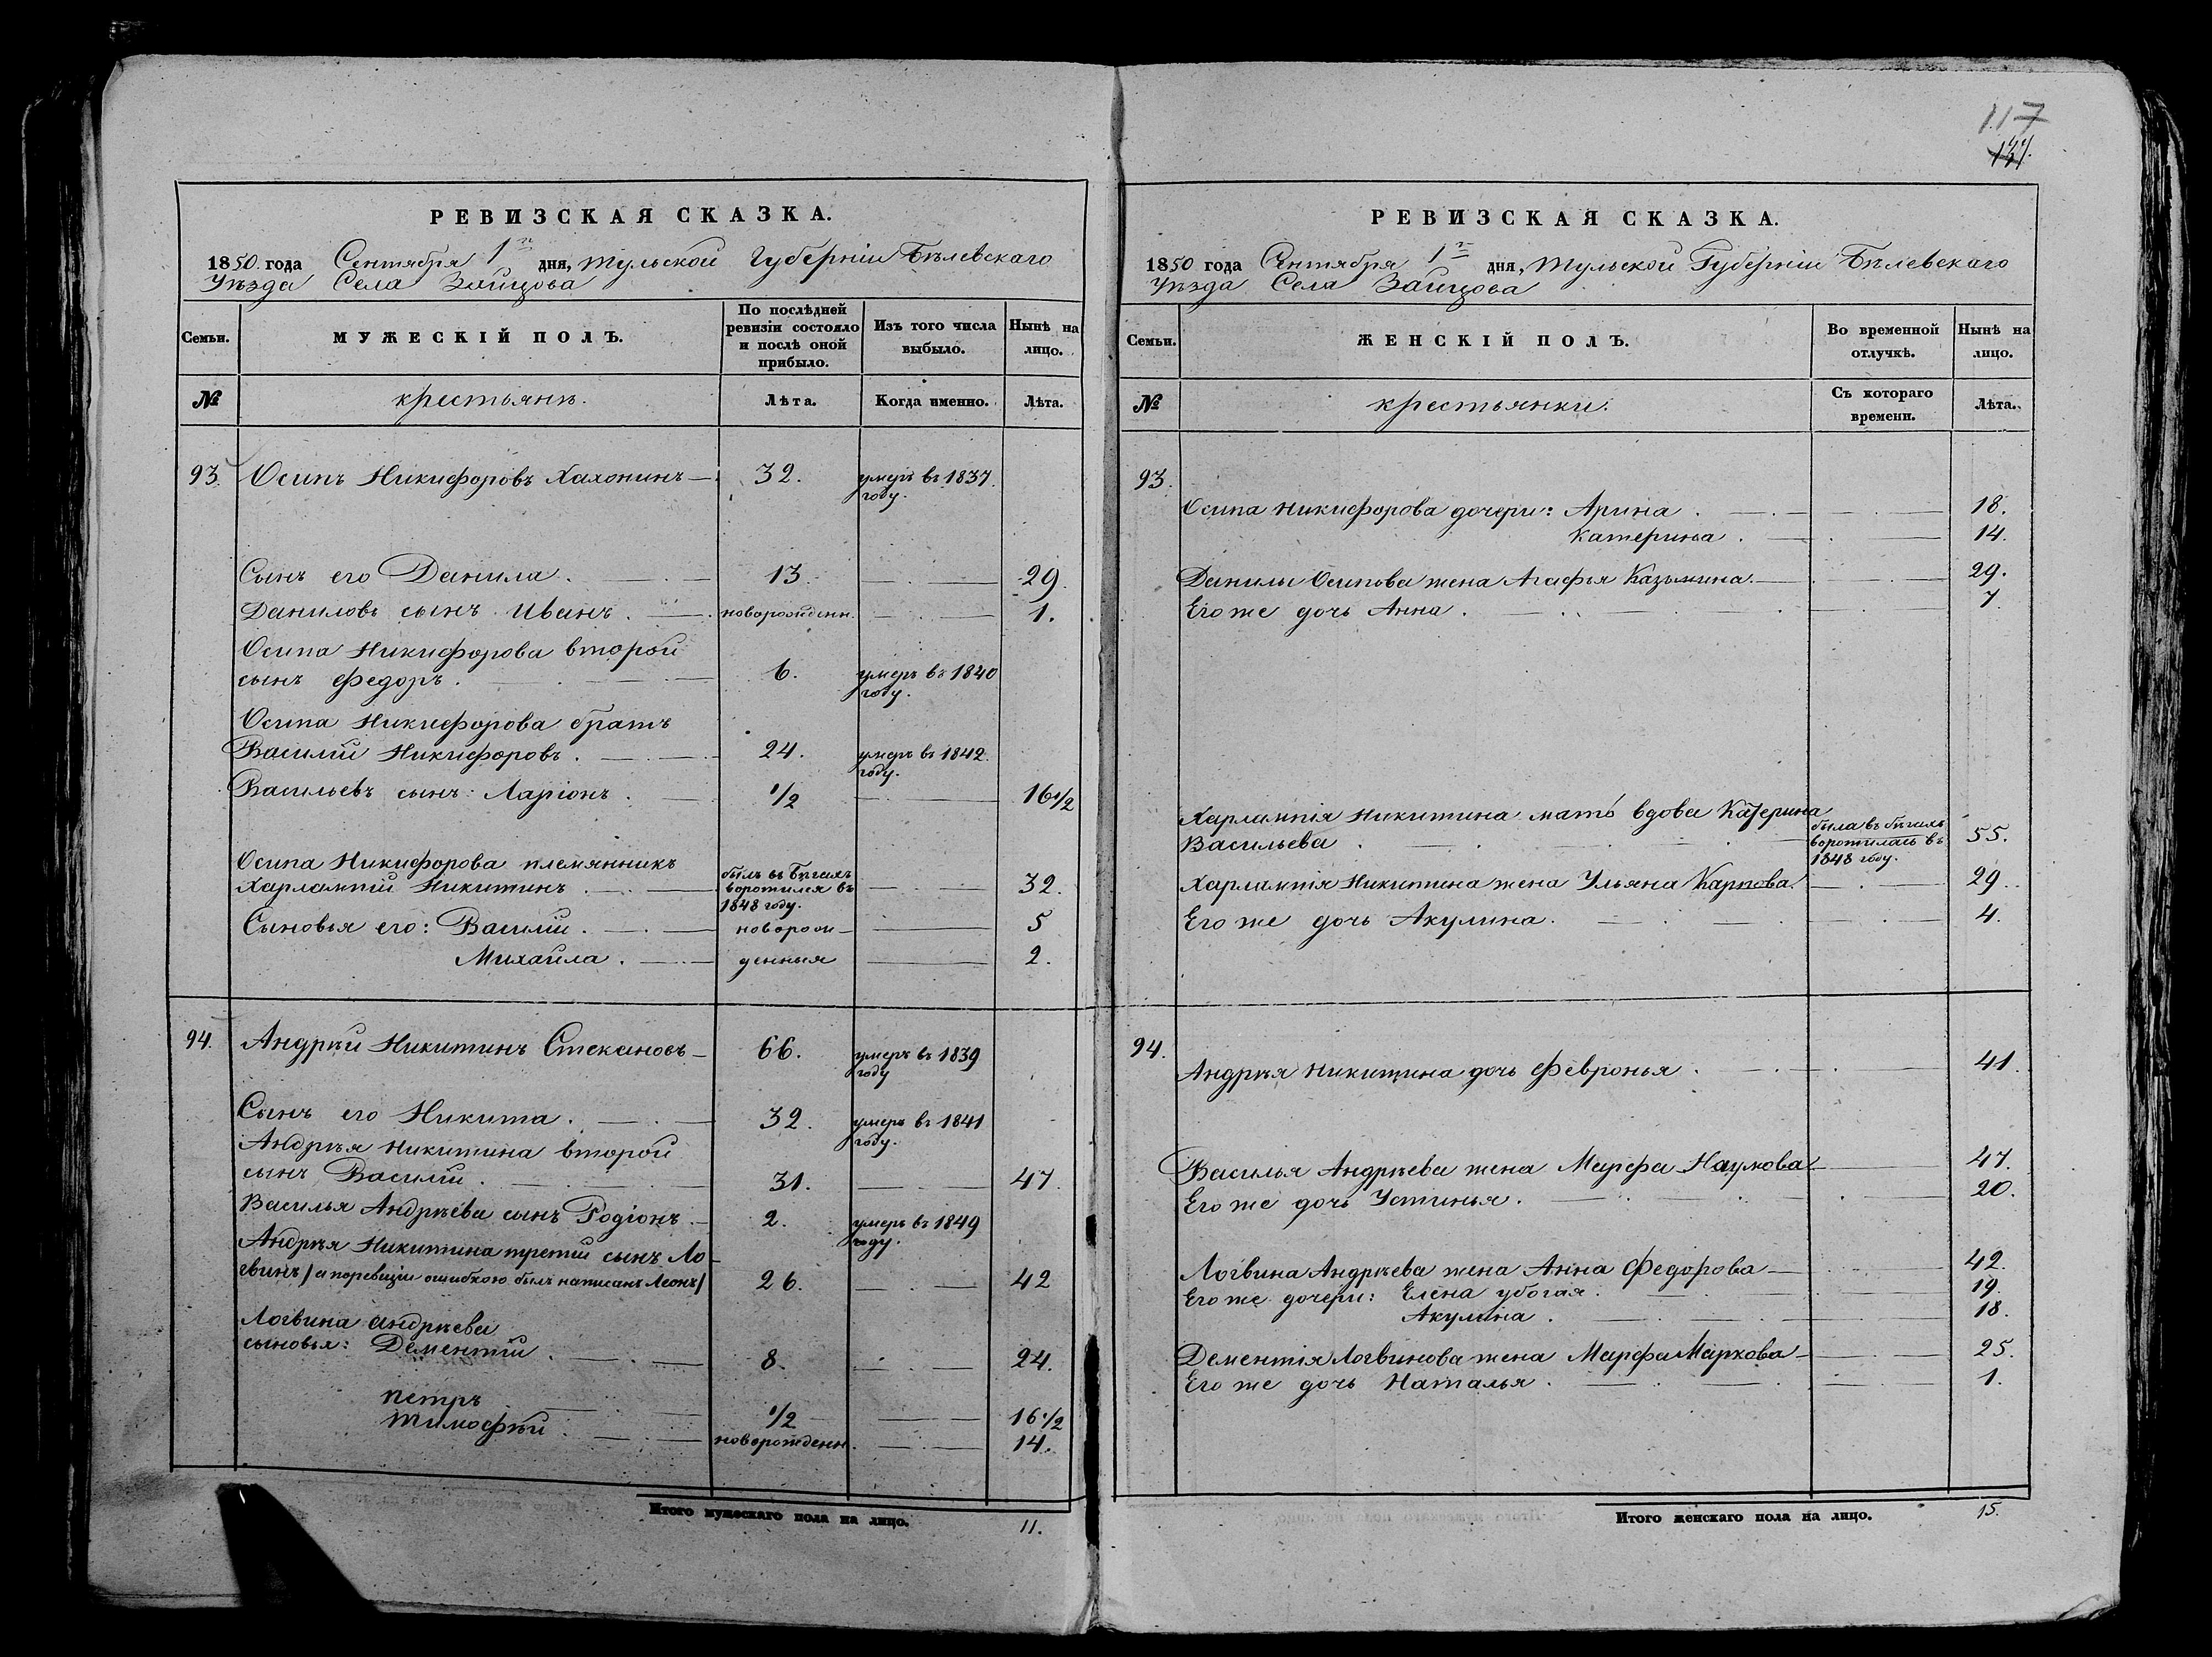 РЕВИЗСКАЯ СКАЗКА.
1850 года Сентября 1 дня, Тульской Губерніи Бѣлевскаго
Уѣзда Села Зайцова
Семьи.
МУЖЕСКІЙ ПОЛЪ.
По послѣдней ревизіи состояло и послѣ оной прибыло.
Изъ того числа выбыло.
Нынѣ на лицо.
№
крестьяне.
Лѣта.
Когда именно.
Лѣта.
93. Осипъ Никифоровъ Хахонинъ 32. умеръ въ 1837 году.
Сынъ его Данила. 13. 29.
Даниловъ сынъ Иванъ. новорожденн. 1.
Осипа Никифорова второй
сынъ Федоръ. 6. умеръ въ 1840 году.
Осипа Никифорова братъ
Василій Никифоровъ. 24. умеръ въ 1842 году.
Васильевъ сынъ: Ларіонъ. 1/2 16 1/2
Осипа Никифорова племянникъ
Харлампій Никитинъ. былъ въ бѣгахъ воротился въ 1848 году. 32.
Сыновья его: Василій. новорож- 5
Михайла. денныя 2.
94. Андрѣй Никитинъ Стекановъ 66. умеръ въ 1839 году
Сынъ его Никита. 32. умеръ въ 1841 году.
Андрѣя Никитина второй
сынъ Василій. 31. 47.
Василья Андрѣева сынъ Родіонъ 2. умеръ въ 1849 году.
Андрѣя Никитина третій сынъ Ло-
гвинъ/а поревизіи ошибкою былъ написанъ Леонъ/ 26. 42
Логвина Андрѣева
сыновья: Дементій. 8. 24.
Петръ 1/2 16 1/2
Тимофѣй. новорожденн. 14.
Итого мужескаго пола на лицо. 11.
117
РЕВИЗСКАЯ СКАЗКА.
1850 года Сентября 1 дня, Тульской Губерніи Бѣлевскаго
Уѣзда Села Зайцова
Семьи.
ЖЕНСКІЙ ПОЛЪ.
Во временной отлучкѣ.
Нынѣ на лицо.
№
крестьянки.
Съ котораго времени.
Лѣта.
93.
Осипа Никифорова дочери: Арина. 18.
Катерина. 14.
Данилы Осипова жена Агафья Казьмина. 29.
Его же дочь Анна. 7.
Харлампія Никитина мать вдова Катерина
Васильева. была въ бѣгахъ воротилась въ 1848 году. 55.
Харлампія Никитина жена Ульяна Карпова. 29.
Его же дочь Акулина. 4.
94.
Андрѣя Никитина дочь Февронья. 41.
Василья Андрѣева жена Марфа Наумова 47.
Его же дочь Устинья. 20.
Логвина Андрѣева жена Анна Федорова 42.
Его же дочери: Елена убогая. 19.
Акулина. 18.
Дементія Логвинова жена Марфа Маркова 25.
Его же дочь Наталья. 1.
Итого женскаго пола на лицо. 15.